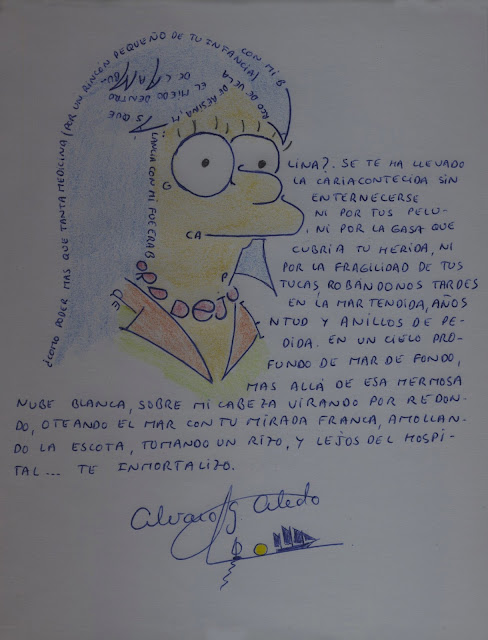 ¿CÓMO PODER MAS QUE TANTA MEDICINA (POR UN RINCON PEQUEÑO DE TU INFANCIA) CON MI B
RCO DE VELA
DE RESINA, M
ÁS QUE
EL MIEDO DENTRO
DE LA AMBU
LANCIA CON MI
G
CA
P
LINA?. SE TE HA LLEVADO
LA CARIACONTECIDA SIN
ENTERNECERSE
NI POR TUS PELU-
, NI POR LA GASA QUE
CUBRIA TU HERIDA, NI
POR LA FRAGILIDAD DE TUS
TUCAS, ROBÁNDONOS TARDES
EN LA MAR TENDIDA, AÑOS
DE
JU
NTUD Y ANILLOS DE PE-
DIDA. EN UN CIELO PRO-
FUNDO DE MAR DE FONDO,
MAS ALLÁ DE ESA HERMOSA
NUBE BLANCA, SOBRE MI CABEZA VIRANDO POR REDON-
DO, OTEANDO EL MAR CON TU MIRADA FRANCA, AMOLLAN-
DO LA ESCOTA, TOMANDO UN RIZO, Y LEJOS DEL HOSPI-
TAL... TE INMORTALIZO.
Alvaro G. Aledo